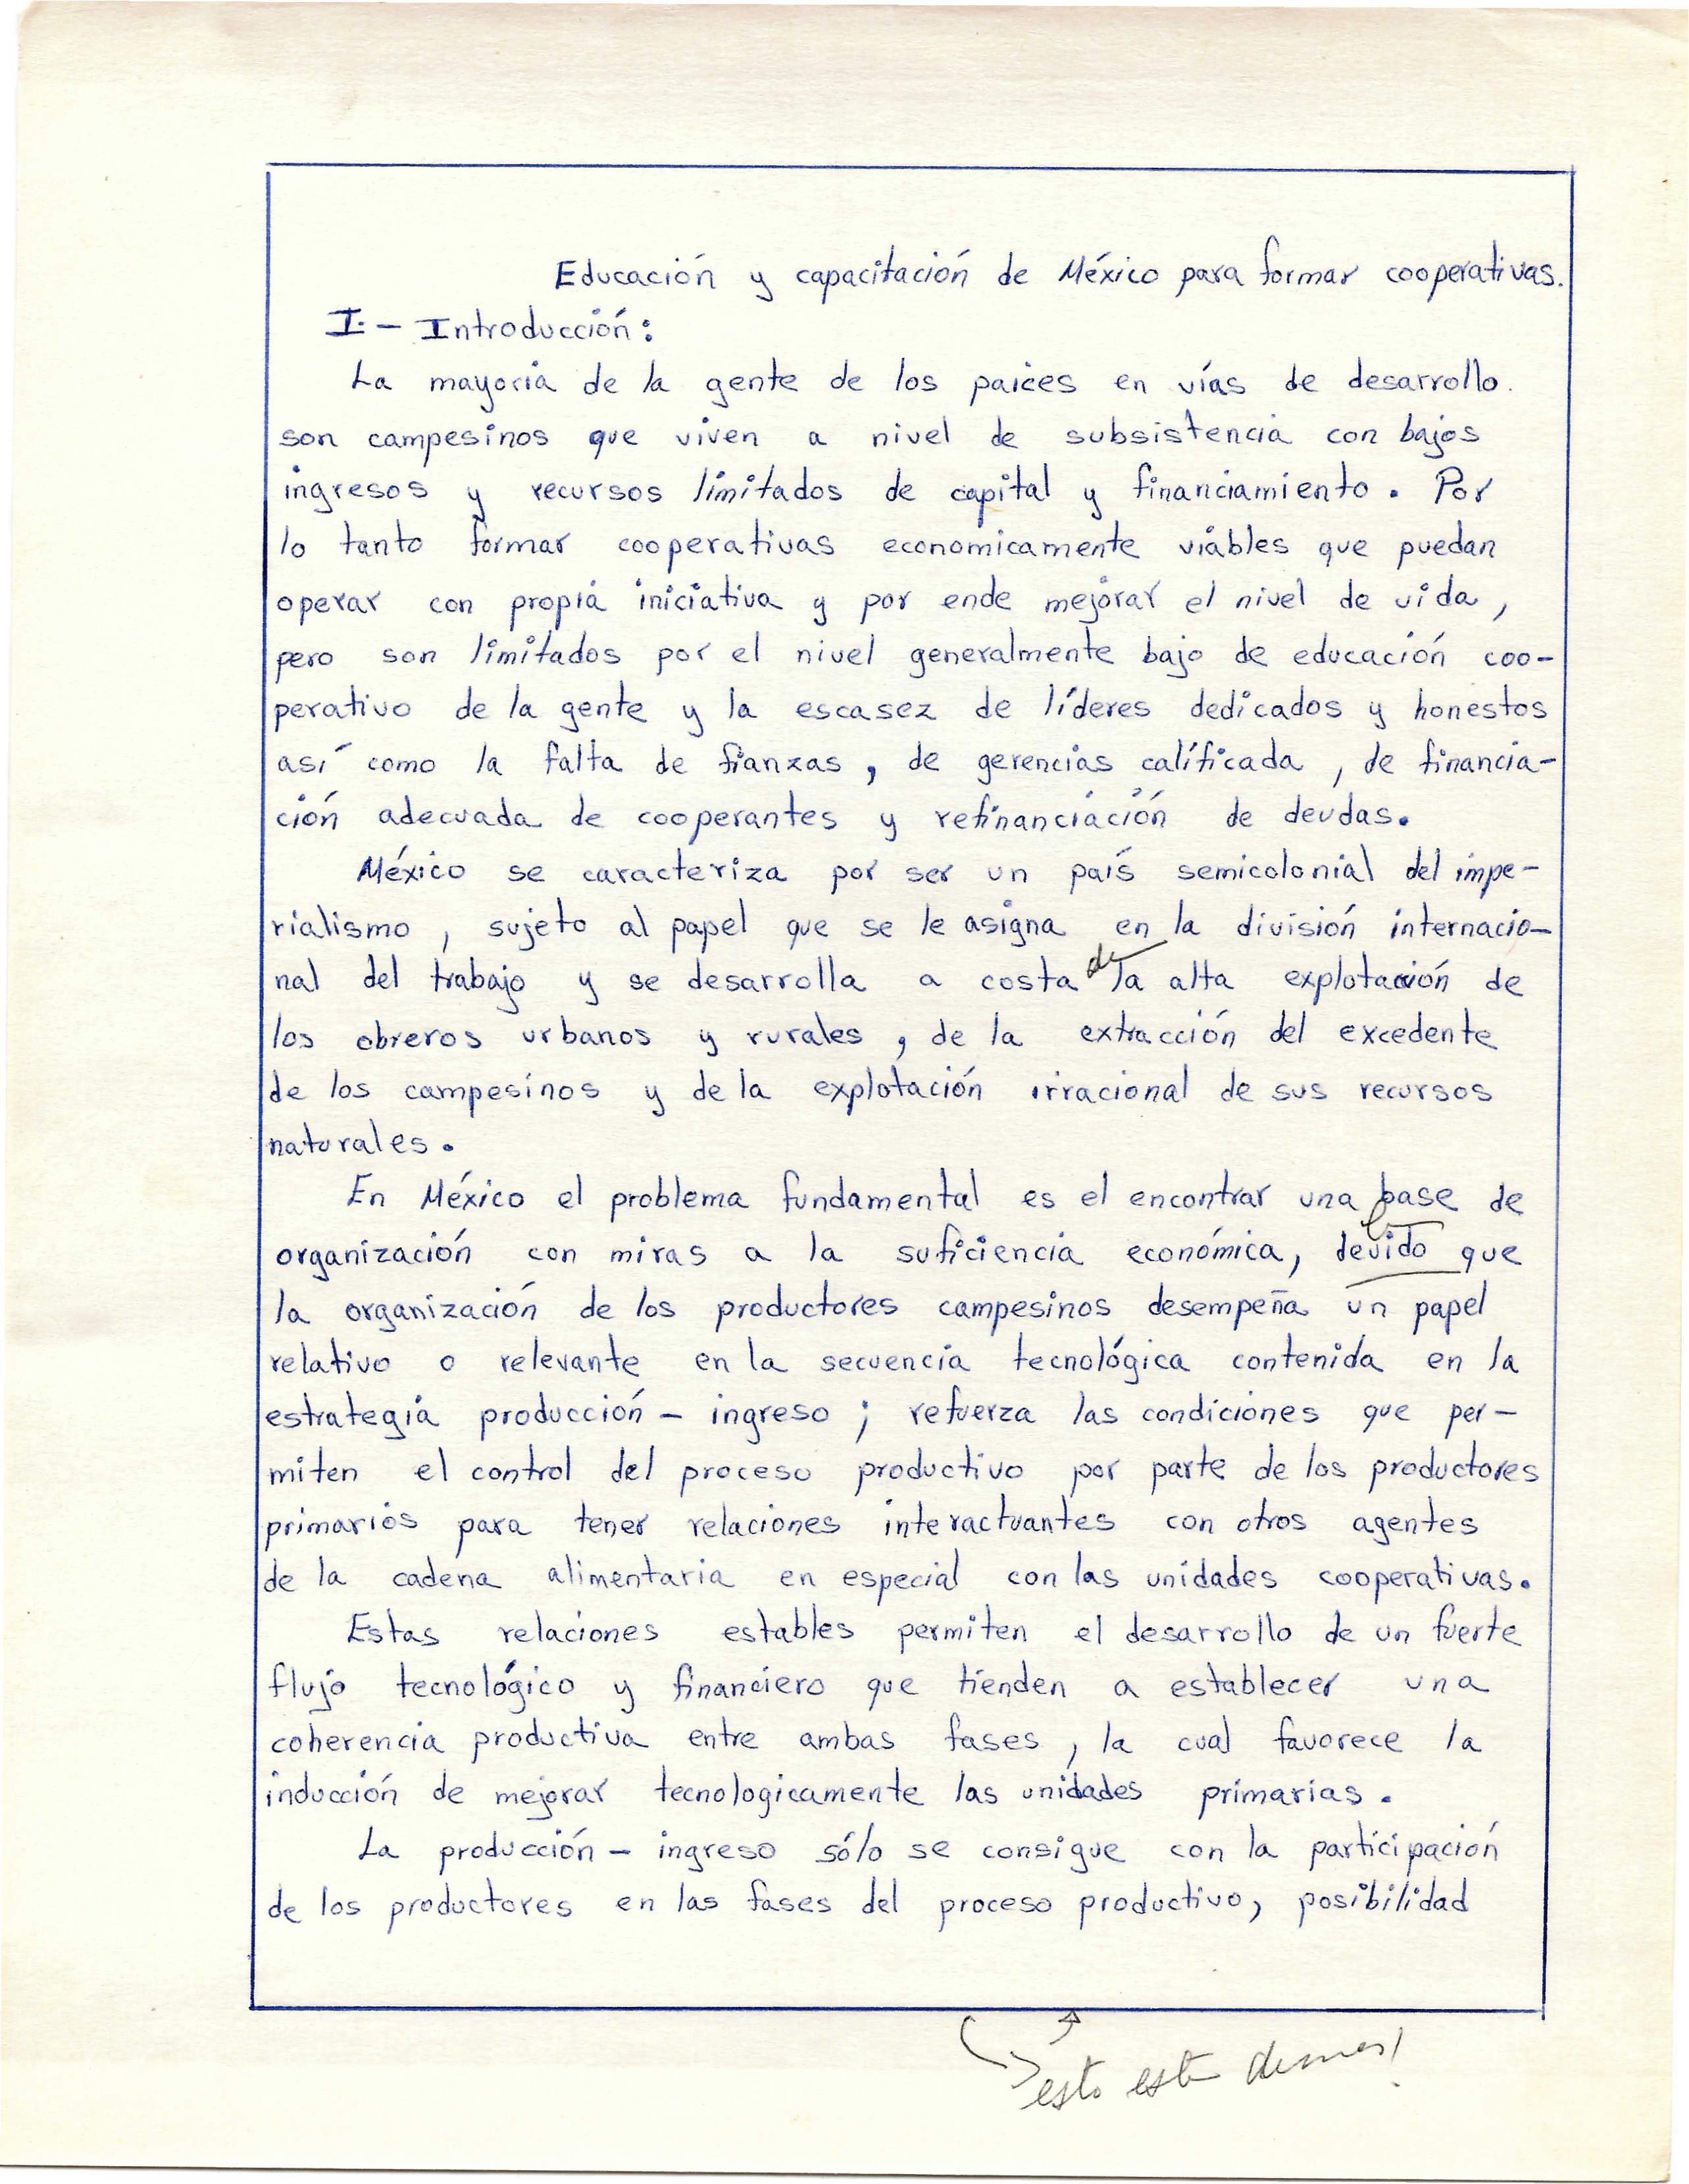 Educación y capacitación de México para formar cooperativas.
I.- Introducción:
La mayoria de la gente de los paices en vías de desarrollo.
son campesinos que viven a nivel de subsistencia con bajos
ingresos y recursos limitados de capital y financiamiento. Por
lo tanto formar cooperativas economicamente viables que puedan
operar con propia iniciativa y por ende mejorar el nivel de vida,
pero son limitados por el nivel generalmente bajo de educación coo-
perativo de la gente y la escasez de líderes dedicados y honestos
así como la falta de fianzas, de gerencias calificada, de financia-
ción adecuada de cooperantes y refinanciación de deudas.
México se caracteriza por ser un país semicolonial del impe-
rialismo, sujeto al papel que se le asigna en la división internacio-
nal del trabajo y se desarrolla a costa de la alta explotación de
los obreros urbanos y rurales, de la extracción del excedente
de los campesinos y de la explotación irracional de sus recursos
naturales.
En México el problema fundamental es el encontrar una base de
organización con miras a la suficiencia económica, devido que
b
la organización de los productores campesinos desempeña un papel
relativo o relevante en la secuencia tecnológica contenida en la
estrategia producción - ingreso; refuerza las condiciones que per-
miten el control del proceso productivo por parte de los productores
primarios para tener relaciones interactuantes con otros agentes
de la cadena alimentaria en especial con las unidades cooperativas.
Estas relaciones estables permiten el desarrollo de un fuerte
flujo tecnológico y financiero que tienden a establecer una
coherencia productiva entre ambas fases, la cual favorece la
inducción de mejorar tecnologicamente las unidades primarias.
La producción - ingreso sólo se consigue con la participación
de los productores en las fases del proceso productivo, posibilidad
esto esta demas!